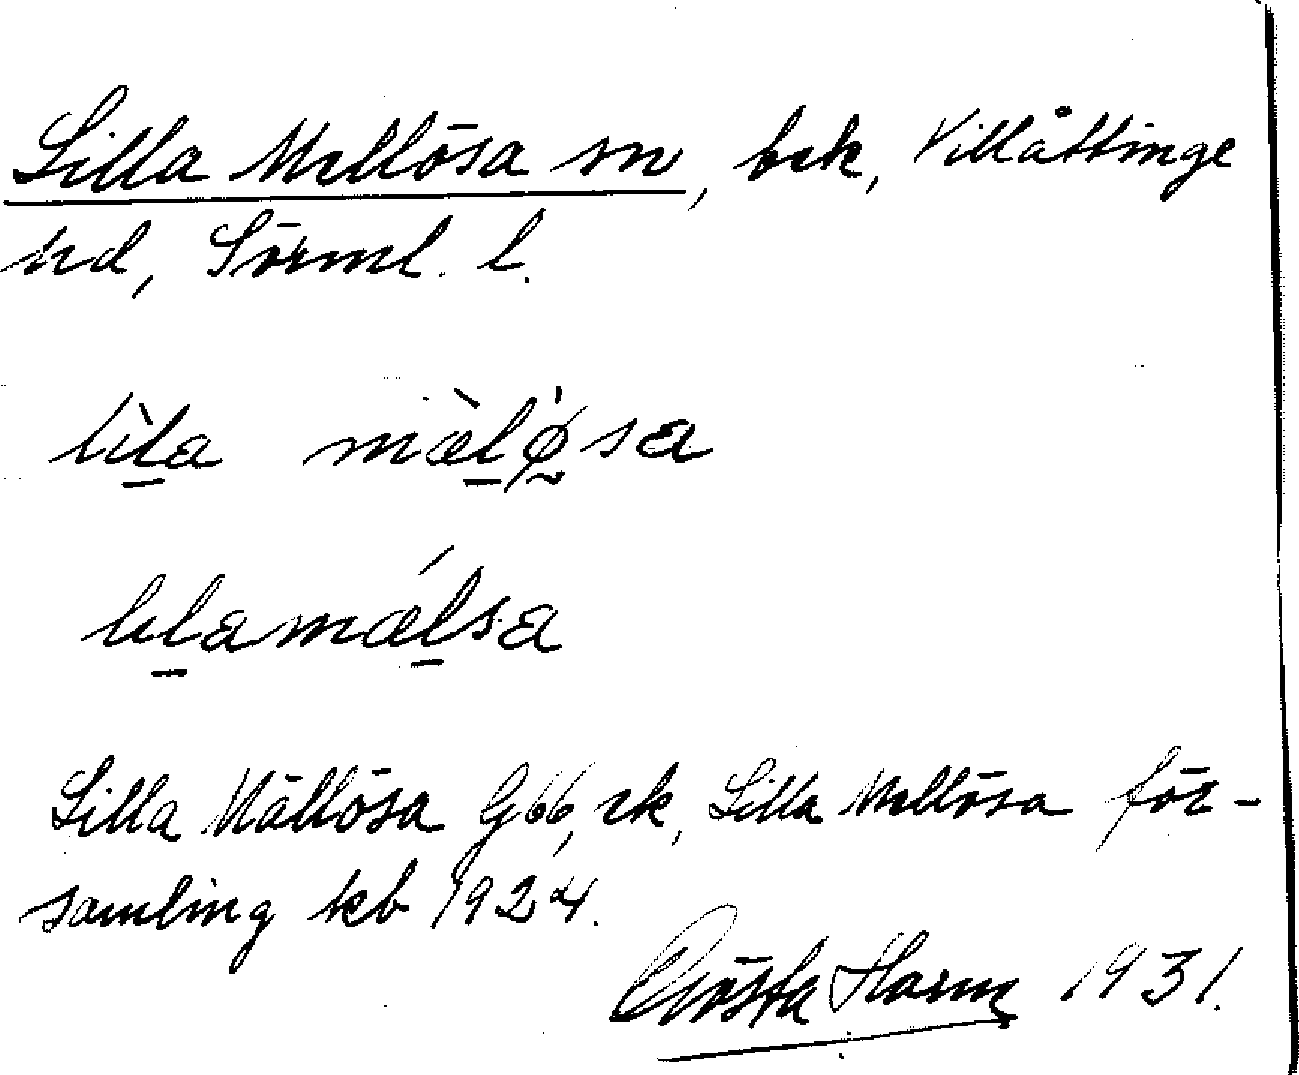 Lilla Mellösa sn, bek, Villåttinge
hd, Sörml. l.
lìla mæ̀lø̍sa
lilamǽlsa
Lilla Mällösa G66, rk, Lilla Mellösa för-
samling kb 1924.
Gösta Harm 1931.